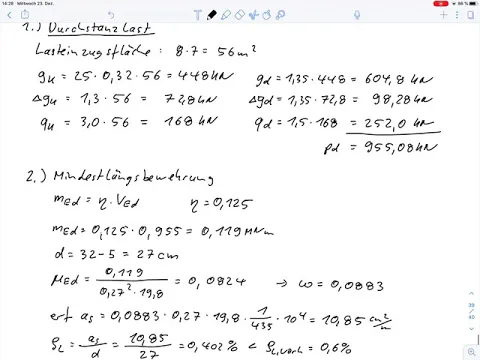 14:28 Mittwoch 23. Dez.
66 %
1.) Durchstanzlast
Lasteinzugsfläche : 8·7 = 56m²
gk = 25 · 0,32 · 56 = 448kN gd = 1,35 · 448 = 604,8 kN
Δgk = 1,3 · 56 = 72,8kN Δgd = 1,35 · 72,8 = 98,28kN
qk = 3,0 · 56 = 168kN qd = 1,5 · 168 = 252,0 kN
pd = 955,08kN
2.) Mindestlängsbewehrung
mEd = η · VEd η = 0,125
mEd = 0,125 · 0,955 = 0,119 MNm
d = 32 - 5 = 27 cm
μEd = 0,119 / 0,27² · 19,8 = 0,0824 → ω = 0,0883
erf as = 0,0883 · 0,27 · 19,8 · 1/435 · 10⁴ = 10,85 cm²/m
ρL = as/d = 10,85/27 = 0,402% < ρL,vorh = 0,6%
39
40